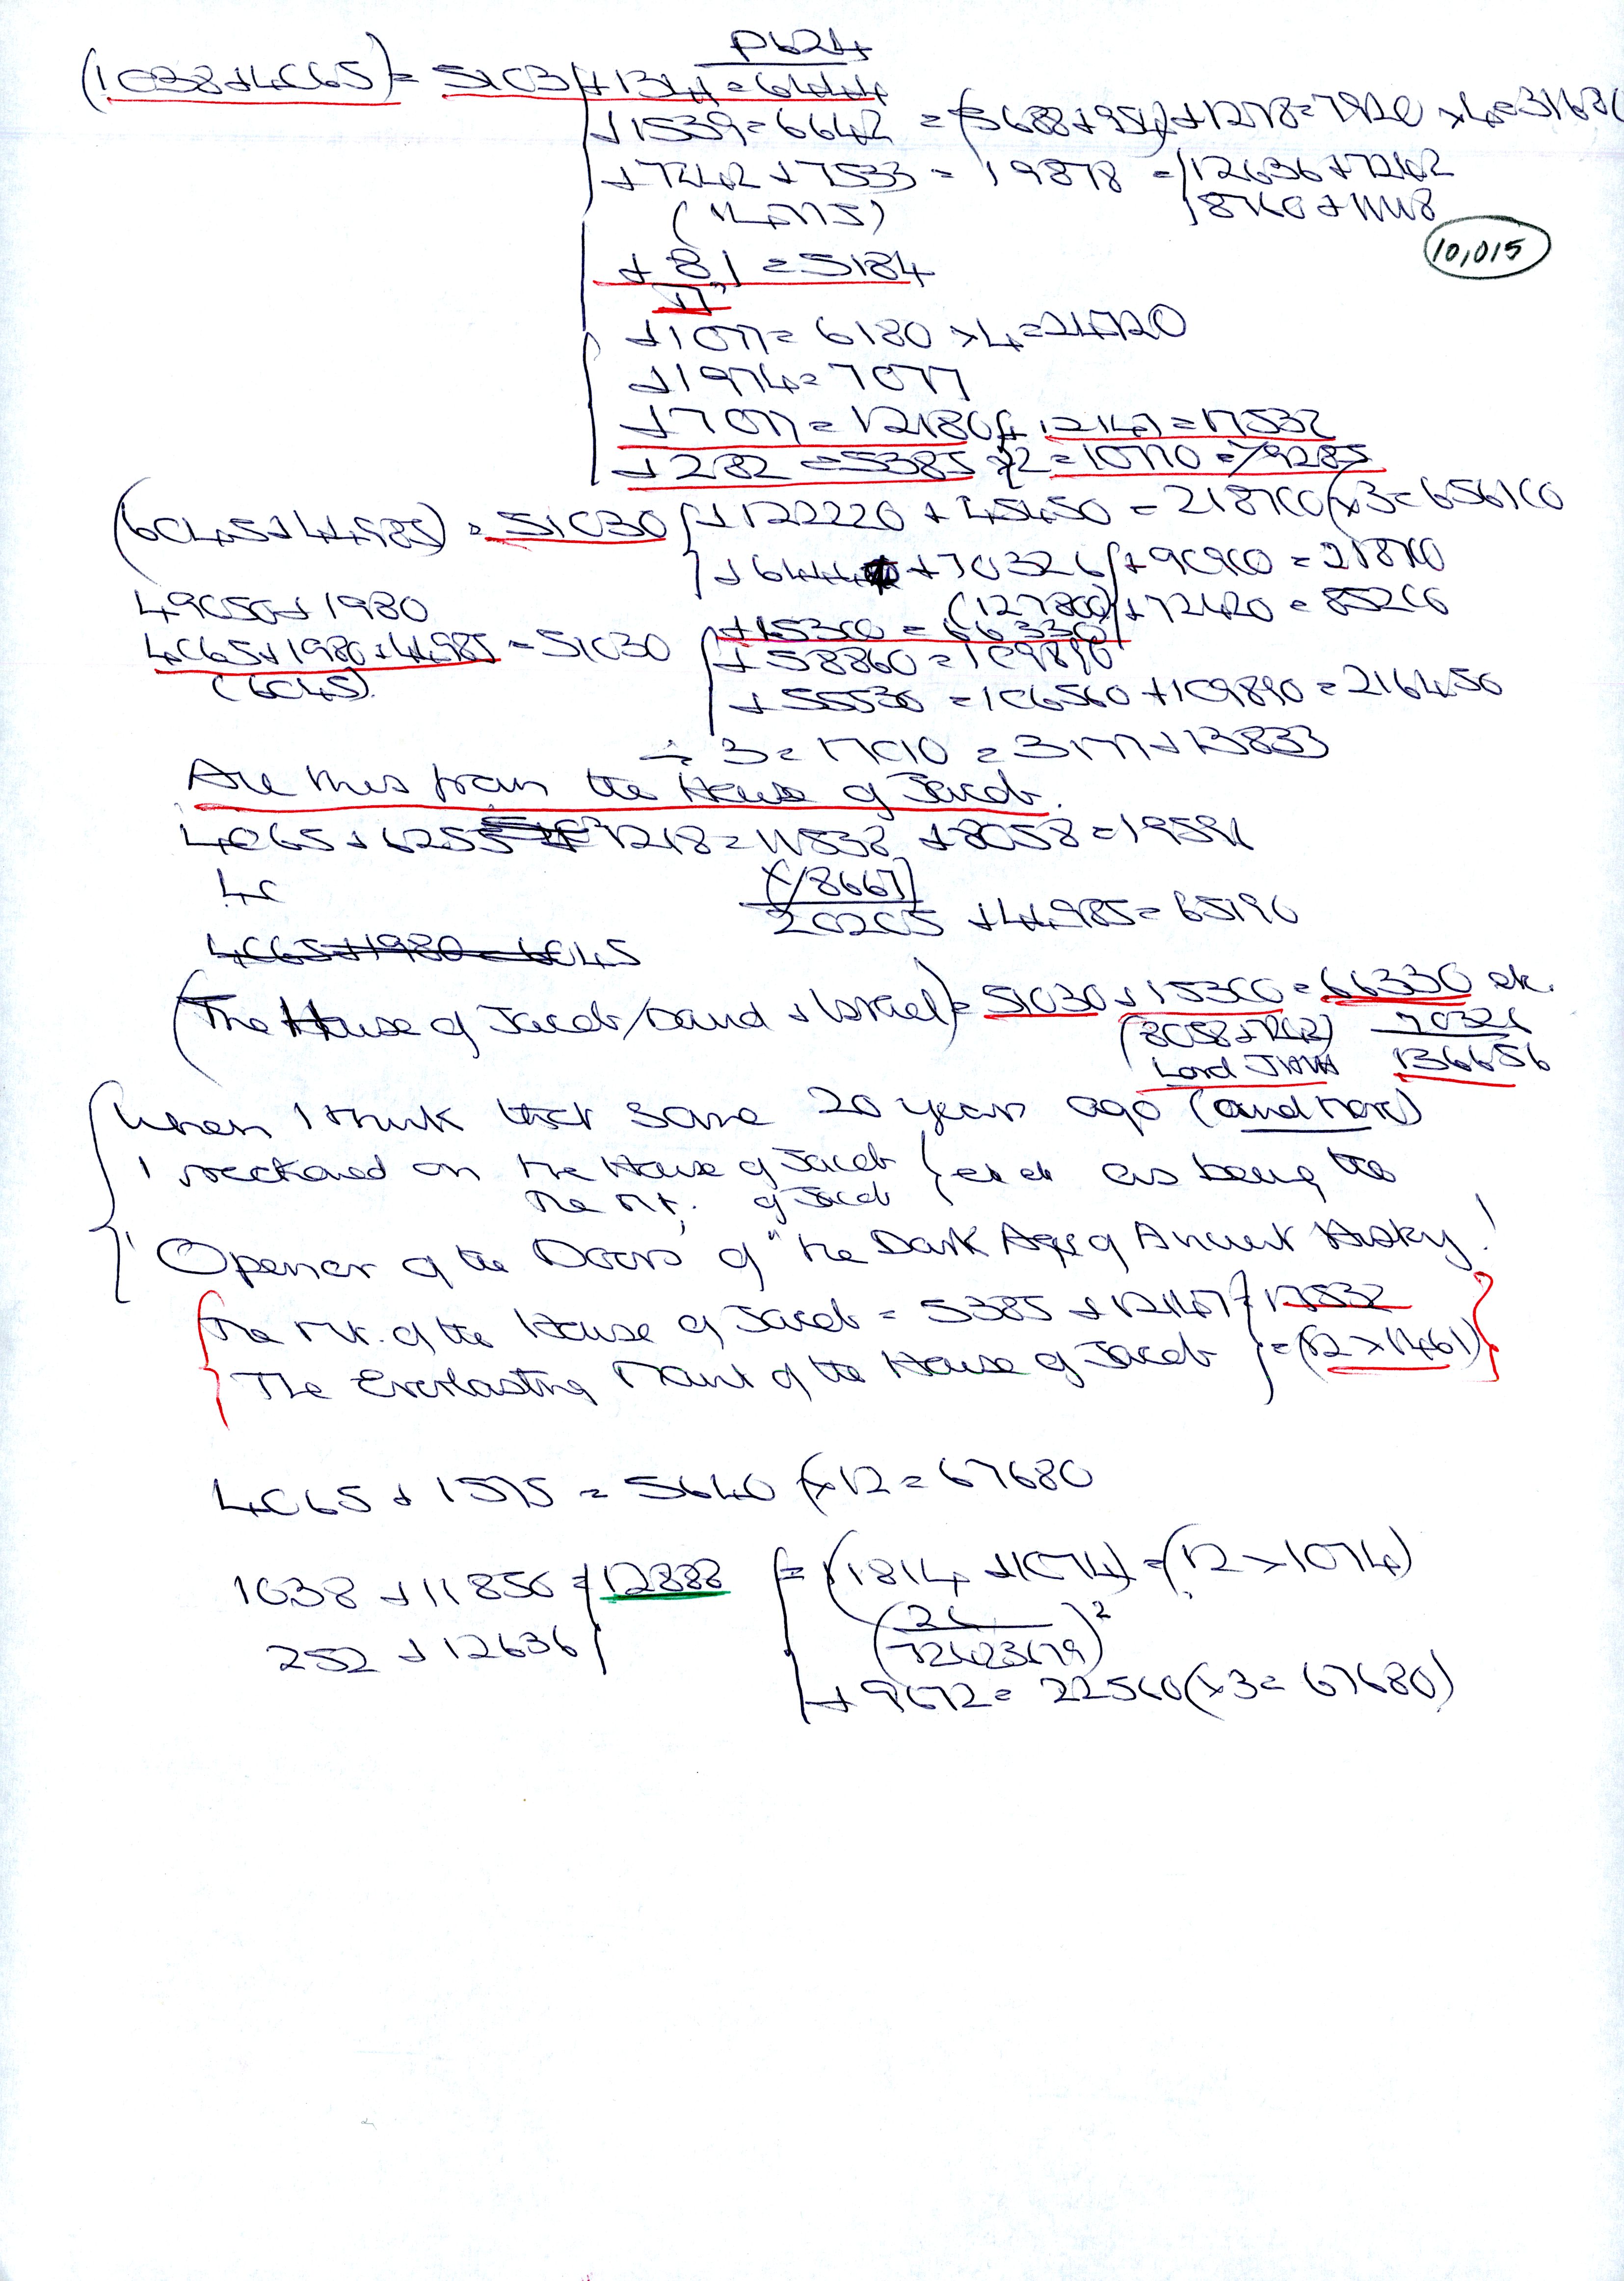 P624
(1038+4065) = 5103 +1341 = 6444
+1539 = 6642 = (5688+954)+1278 = 7920 ×4 = 31680
+7242 +7533 = 19878 = 12636+7242
(14775) 8760 + 11118
10,015
+ 81 = 5184
+1077 = 6180 ×4 = 24720
+1974 = 7077
+7077 = 12180
+ 12147 = 17532
+ 282 = 5385 ×2 = 10770
(6045+44985) = 51030 +122220 + 45450 = 218700 (×3 = 656100
+70326 +90900 = 21870
49050+1980 (127800) +72420 = 85200
4065+1980+44985 = 51030 +15300 = 66330
(6045). + 58860 = 109890
+ 55530 = 106560 +109890 = 216450
÷ 3 = 17010 = 3177+13833
Are this from the House of Jacob.
4065 + 6255 1218 = 11538 +8058 = 19596
4c (/8667)
20205 +44985 = 65190
4065+1980 = 6045
(The House of Jacob/David + Israel) = 51030 + 15300 = 66330 etc.
(8058+7242) 70326
Lord JHVH 136656
When I think that some 20 years ago (and more)
I reckoned on the House of Jacob etc as being the
The Mt. of Jacob
"Opener of the Doors" of "the Dark Age of Ancient History!
The Mt. of the House of Jacob = 5385 + 12147 = 17532
The Everlasting Mount of the House of Jacob = (12 × 1461)
4065 + 1575 = 5640 (×12 = 67680
1038 + 11850 = 12888 = (11814 +1074) = (12 × 1074)
252 + 12636
+ 9672 = 22560 (×3 = 67680)